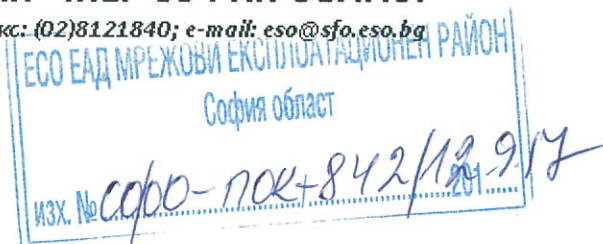 кс: (02)8121840; e-mail: eso@sfo.eso.bg
ЕСО ЕАД МРЕЖОВИ ЕКСПЛОАТАЦИОНЕН РАЙОН
София област
изх. № СОФО-ПОК-842/12.9.17
201......